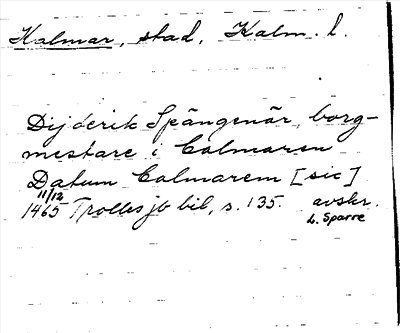 Kalmar, stad, Kalm. l.
Dijderik Spångenår, borg-
mestare i Colmaren
Datum Colmarem [sic]
11/12
1465 Trolles jb bil, s. 135. avskr.
L. Sparre